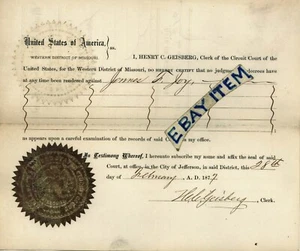 United States of America,
WESTERN DISTRICT OF MISSOURI. } ss.
I, HENRY C. GEISBERG, Clerk of the Circuit Court of the
United States, for the Western District of Missouri, DO HEREBY CERTIFY that no judgments or decrees have
at any time been rendered against
EBAY ITEM
as appears upon a careful examination of the records of said Court in my office.
In Testimony Whereof, I hereunto subscribe my name and affix the seal of said
Court, at office, in the City of Jefferson, in said District, this 28th
day of February A. D. 1877
H. C. Geisberg, Clerk.